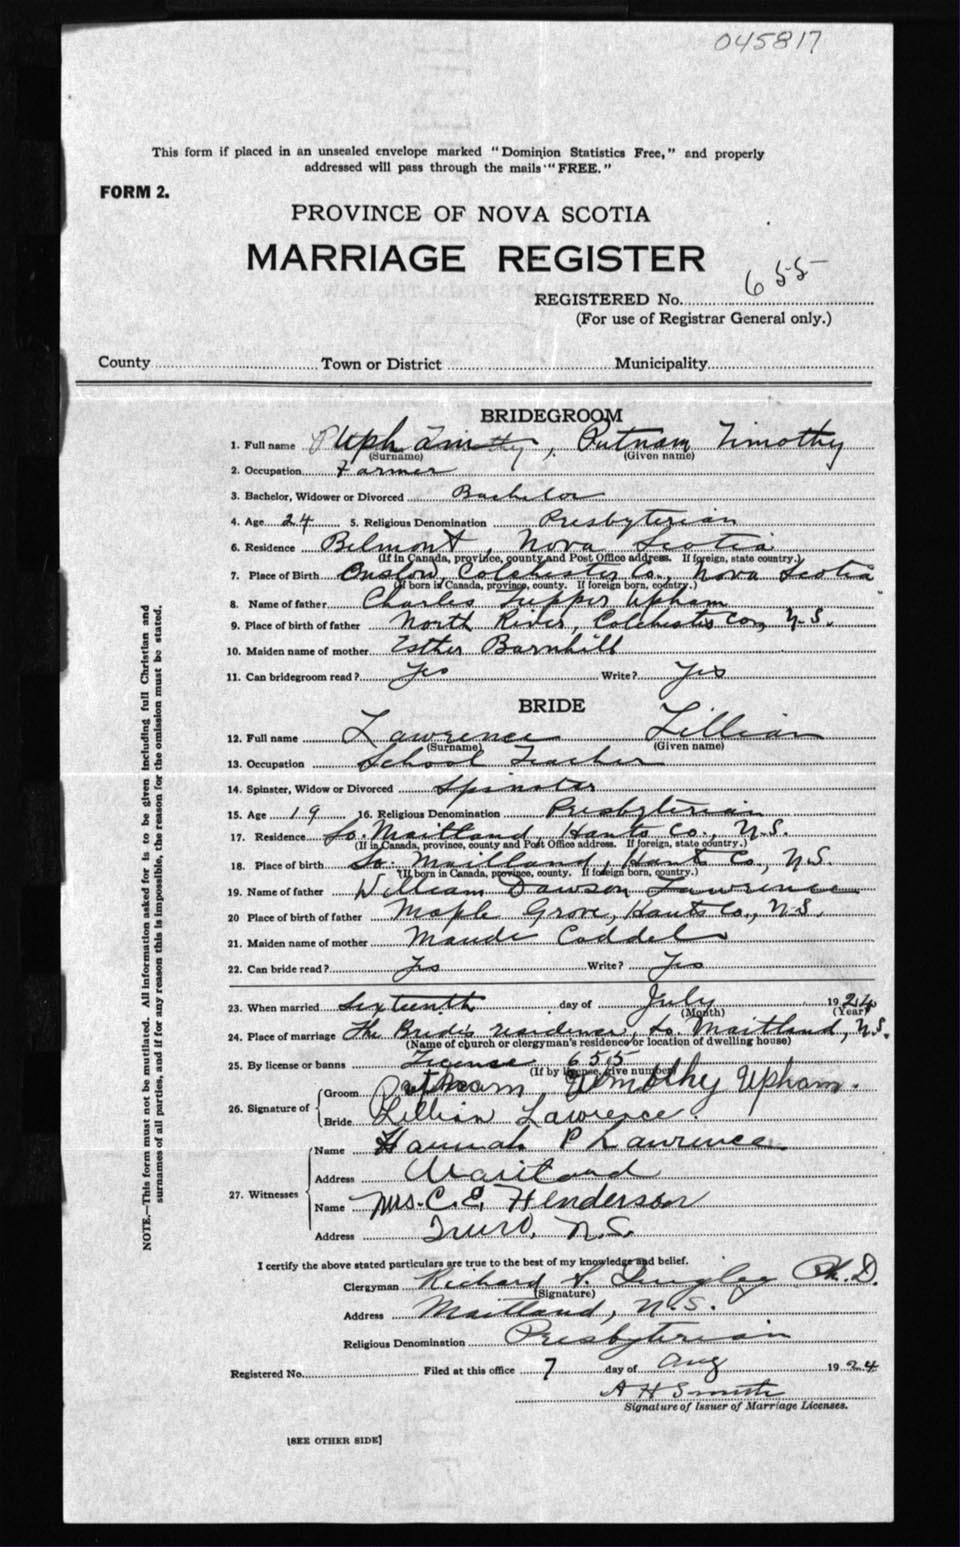 045817
This form if placed in an unsealed envelope marked "Dominion Statistics Free," and properly
addressed will pass through the mails "FREE."
FORM 2.
PROVINCE OF NOVA SCOTIA
MARRIAGE REGISTER
REGISTERED No. 655
(For use of Registrar General only.)
County Town or District Municipality
BRIDEGROOM
1. Full name Upham, Putnam Timothy
(Surname) (Given name)
2. Occupation Farmer
3. Bachelor, Widower or Divorced Bachelor
4. Age 24 5. Religious Denomination Presbyterian
6. Residence Belmont, Nova Scotia
(If in Canada, province, county and Post Office address. If foreign, state country.)
7. Place of Birth Onslow, Colchester Co., Nova Scotia
(If born in Canada, province, county. If foreign born, country.)
8. Name of father Charles Tupper Upham
9. Place of birth of father North River, Colchester Co., N.S.
10. Maiden name of mother Esther Barnhill
11. Can bridegroom read? Yes Write? Yes
BRIDE
12. Full name Lawrence Lillian
(Surname) (Given name)
13. Occupation School Teacher
14. Spinster, Widow or Divorced Spinster
15. Age 19 16. Religious Denomination Presbyterian
17. Residence So. Maitland, Hants Co., N.S.
(If in Canada, province, county and Post Office address. If foreign, state country.)
18. Place of birth So. Maitland, Hants Co., N.S.
(If born in Canada, province, county. If foreign born, country.)
19. Name of father William Dawson Lawrence
20 Place of birth of father Maple Grove, Hants Co., N.S.
21. Maiden name of mother Maude Caddell
22. Can bride read? Yes Write? Yes
23. When married Sixteenth day of July 1924
(Month) (Year)
24. Place of marriage The Bride's residence, So. Maitland, N.S.
(Name of church or clergyman's residence or location of dwelling house)
25. By license or banns License 655
(If by license, give number)
26. Signature of Groom Putnam Timothy Upham.
Bride Lillian Lawrence.
27. Witnesses Name Hannah P Lawrence
Address Maitland
Name Mrs. C. E. Henderson
Address Truro, N.S.
I certify the above stated particulars are true to the best of my knowledge and belief.
Clergyman Richard Ph. D.
(Signature)
Address Maitland, N.S.
Religious Denomination Presbyterian
Registered No. Filed at this office 7 day of Aug 1924
A H Smith
Signature of Issuer of Marriage Licenses.
[SEE OTHER SIDE]
NOTE.—This form must not be mutilated. All information asked for is to be given including full Christian and
surnames of all parties, and if for any reason this is impossible, the reason for the omission must be stated.